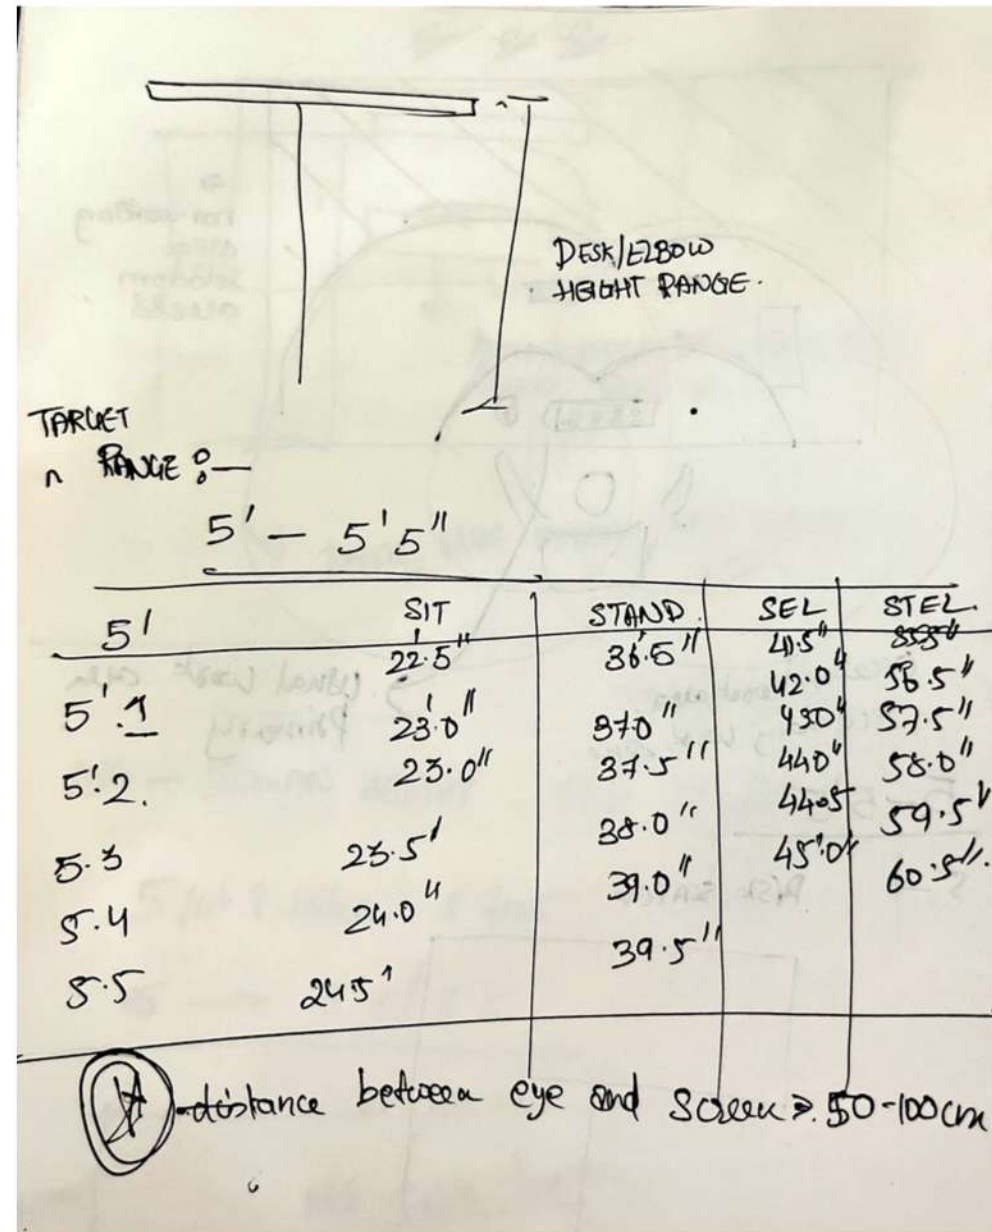 DESK/ELBOW
HEIGHT RANGE.
TARGET
RANGE :—
5' — 5'5"
SIT STAND. SEL STEL.
5' 22.5" 36.5" 41.5"
5'.1 23.0" 37.0" 42.0" 56.5"
5'.2. 23.0" 37.5" 43.0" 57.5"
5.3 23.5' 38.0" 44.0" 58.0"
5.4 24.0" 39.0" 44.5 59.5"
5.5 24.5' 39.5" 45.0" 60.5".
-distance between eye and screen ≥ 50-100cm